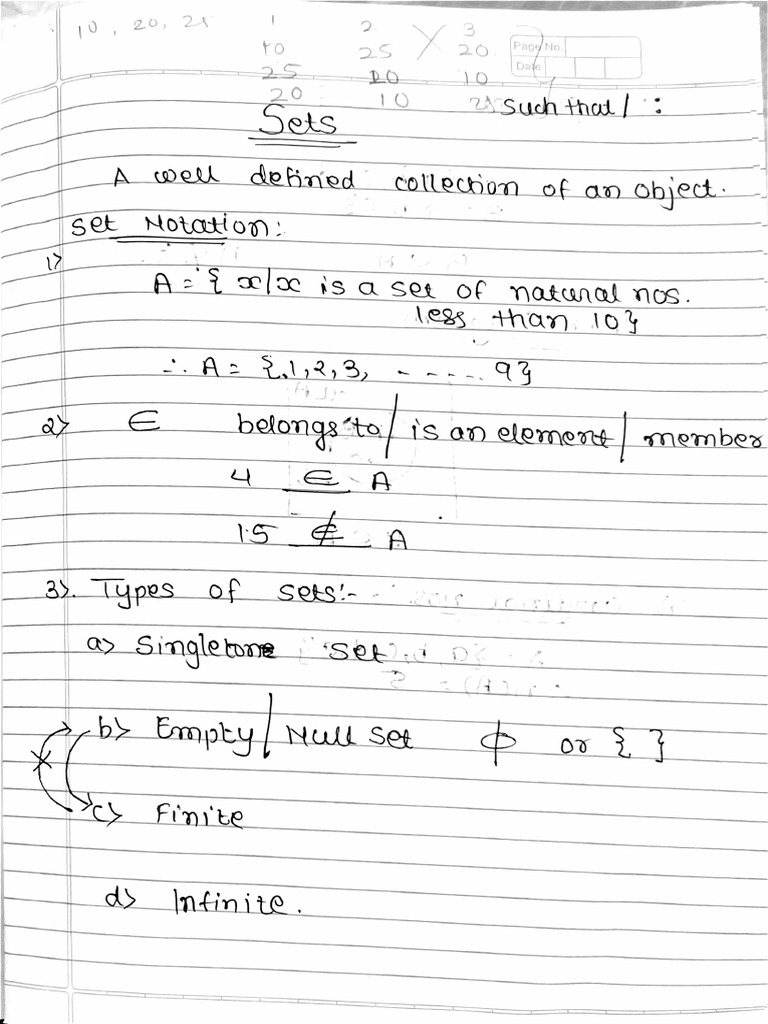 10, 20, 25
1 2 3
10 25 20 Page No.
25 20 10 Date
20 10 25 such that / :
Sets
A well defined collection of an object.
Set Notation:
1)
A = { x/x is a set of natural nos.
less than 10}
∴ A = {1, 2, 3, ----- 9}
2) ∈ belongs to / is an element / member
4 ∈ A
1.5 ∉ A
3). Types of sets:-
a) Singletone set
b) Empty / Null set ϕ or { }
c) Finite
d) Infinite.